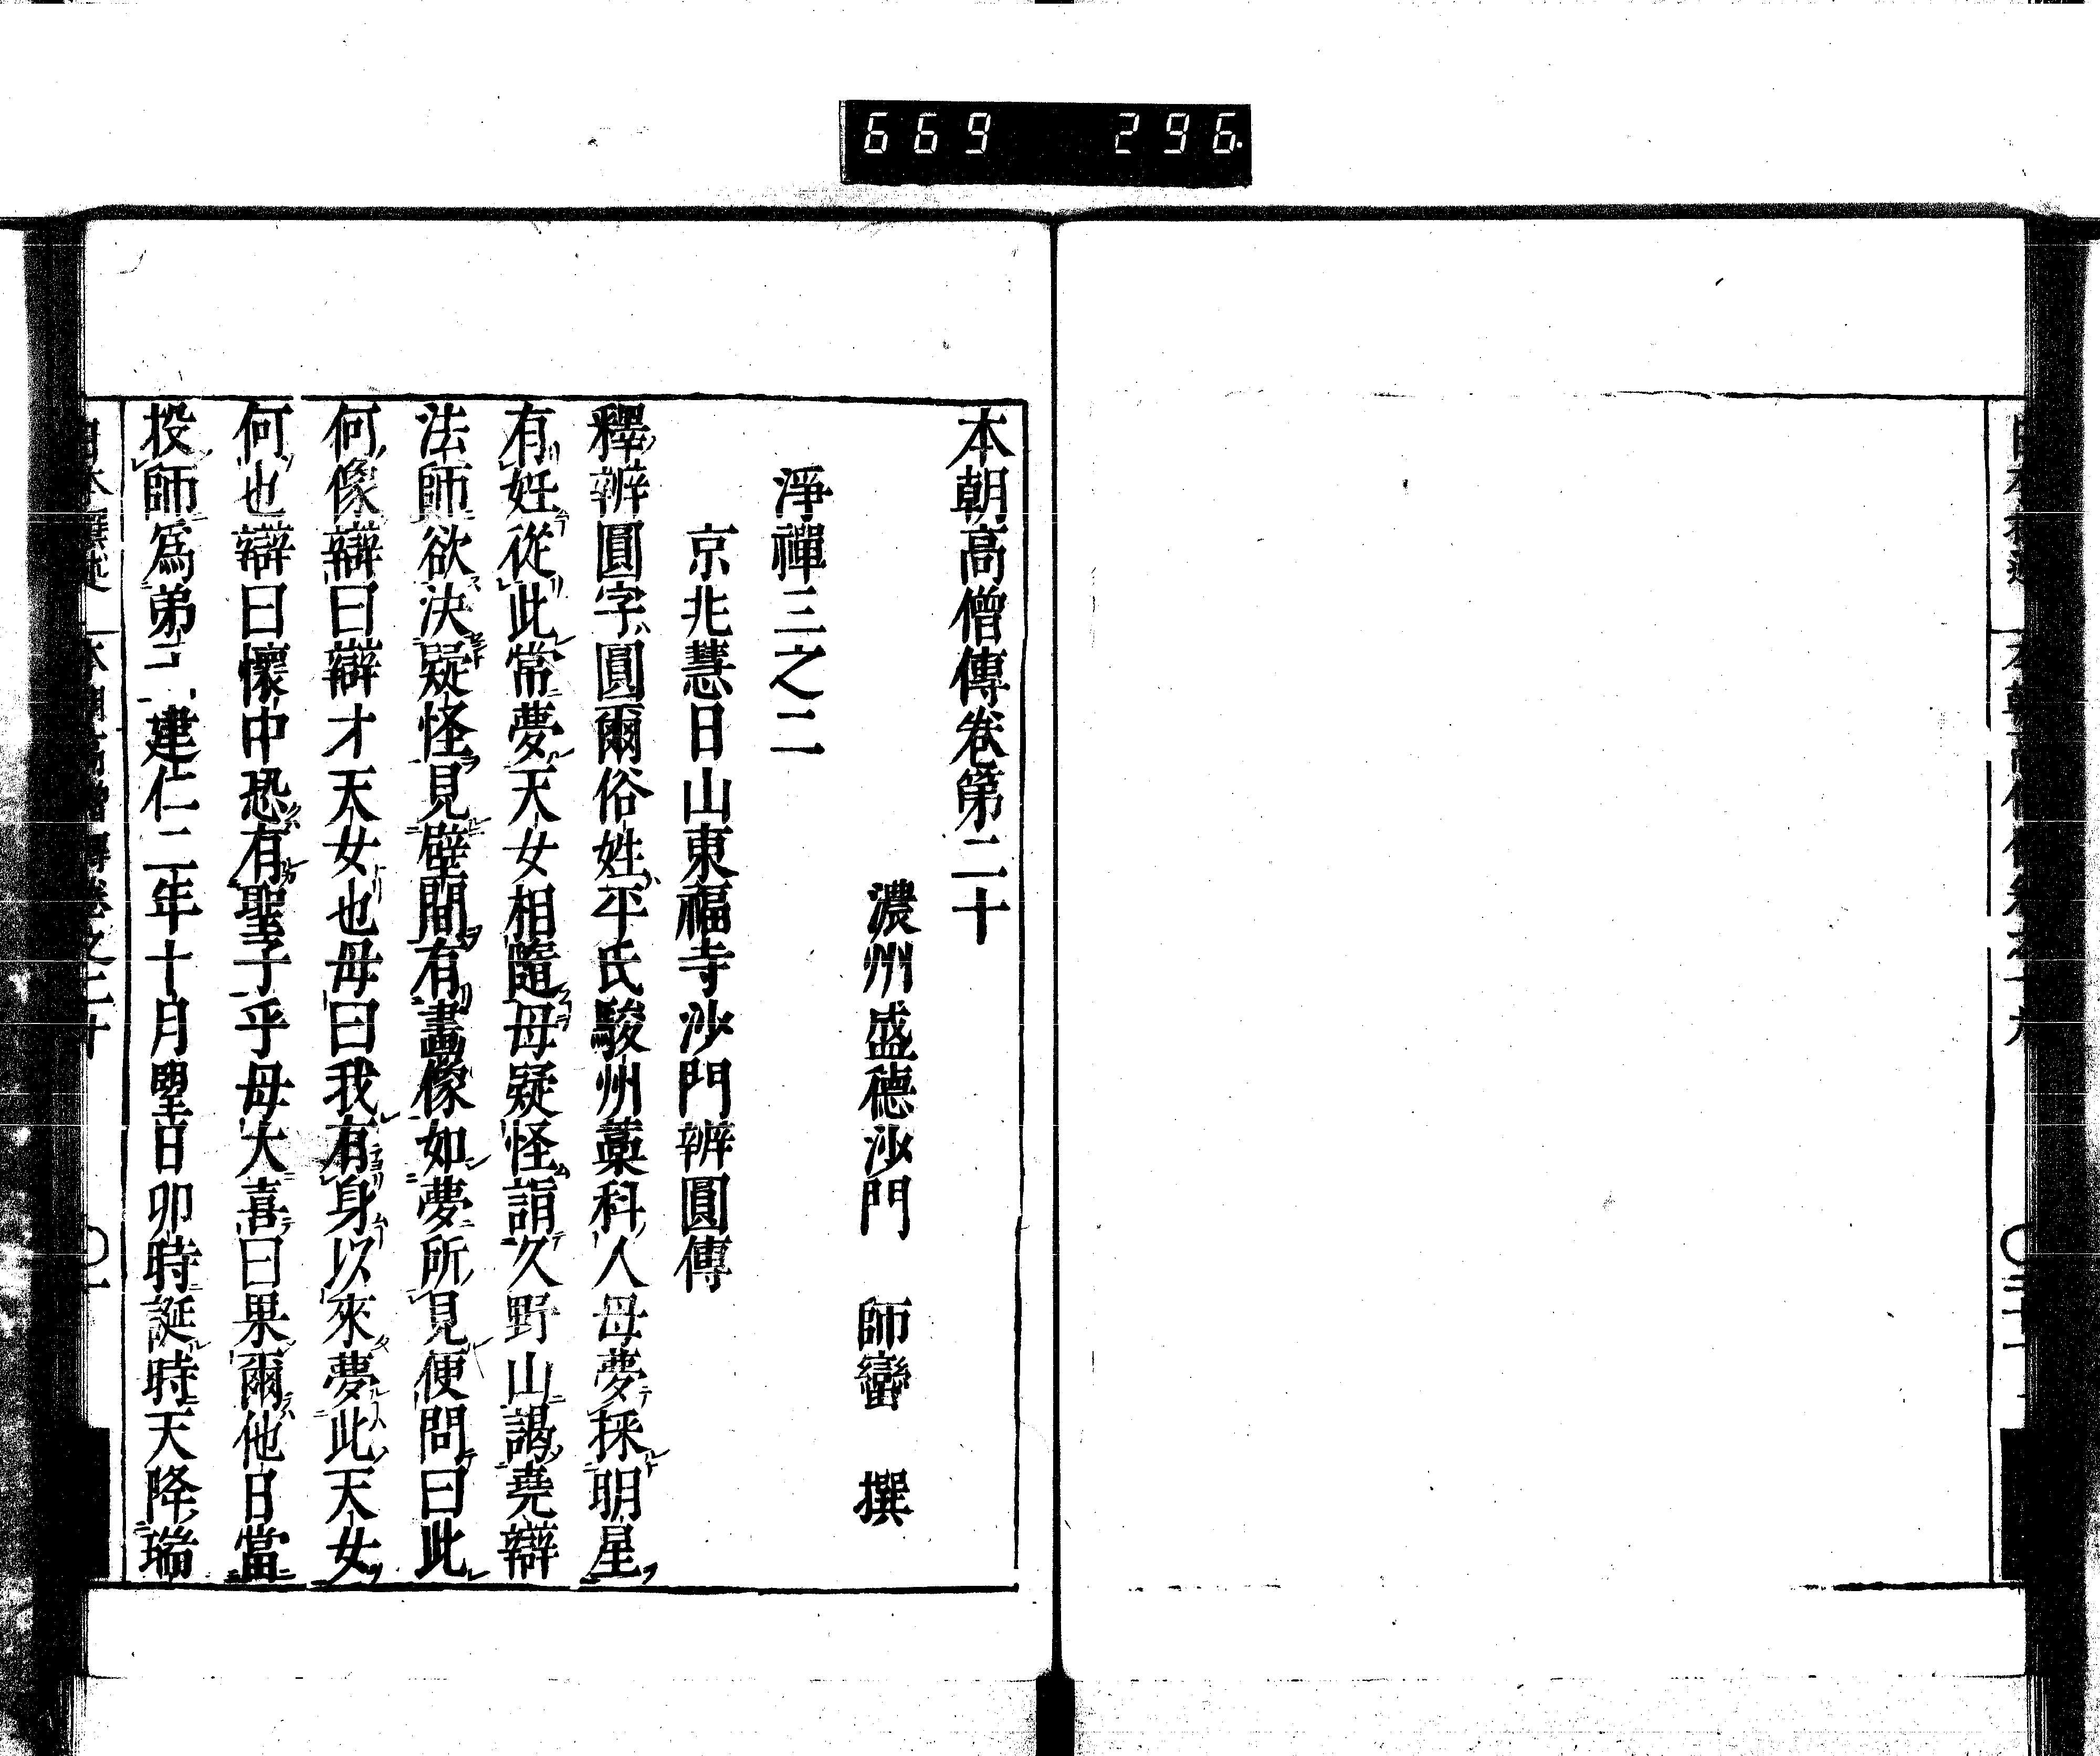 669 296
本朝高僧傳卷第二十
濃州盛德沙門 師蠻 撰
淨禪三之二
京兆慧日山東福寺沙門辨圓傳
釋辨圓字圓爾俗姓平氏駿州藁科人母夢採明星
有妊從此常夢天女相隨母疑怪詣久野山謁堯辯
法師欲決疑怪見壁間有畫像如夢所見便問曰此
何像辯曰辯才天女也母曰我有身以來夢此天女
何也辯曰懷中恐有聖子乎母大喜曰果爾他日當
投師爲弟 建仁二年十月望日卯時誕時天降瑞